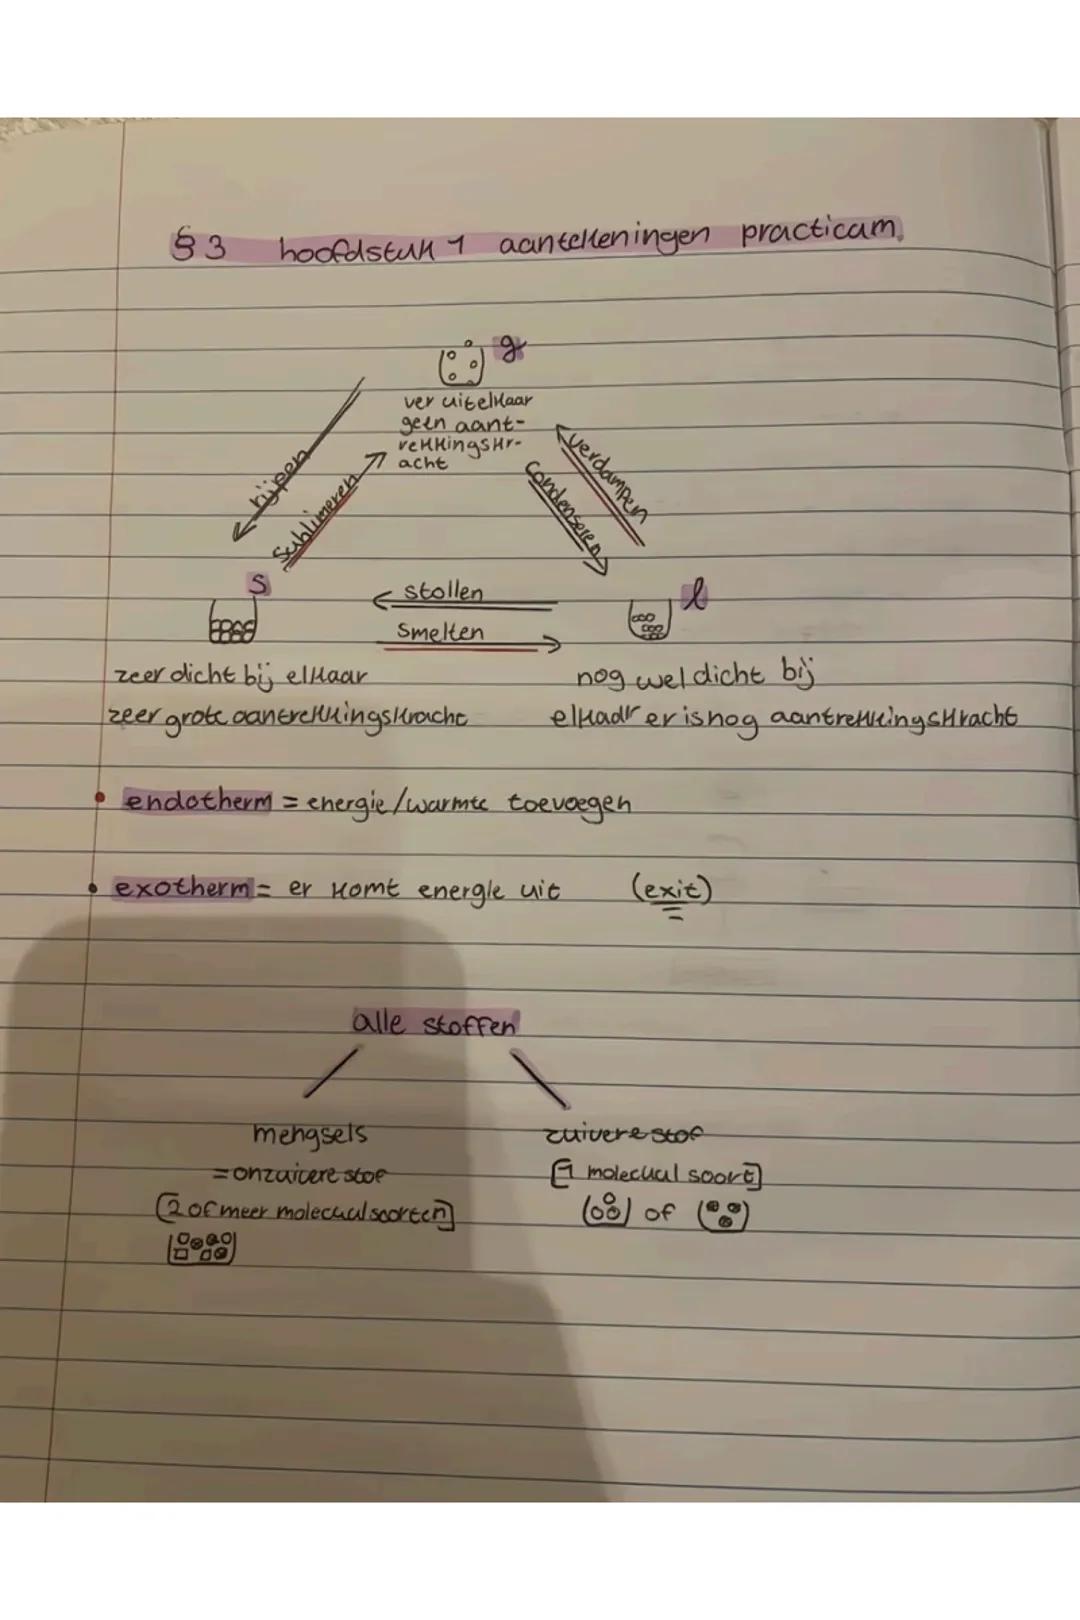 §3 hoofdstuk 1 aantekeningen practicum.
g
ver uitelkaar
geen aant-
rekkingskr-
acht
rijpen
sublimeren
verdampen
condenseren
s
stollen
l
smelten
zeer dicht bij elkaar
zeer grote aantrekkingskracht
nog wel dicht bij
elkaar er is nog aantrekkingskracht
• endotherm = energie/warmte toevoegen
• exotherm = er komt energie uit (exit)
alle stoffen
mengsels
= onzuivere stof
[2 of meer molecuulsoorten]
zuivere stof
[1 molecuul soort]
of